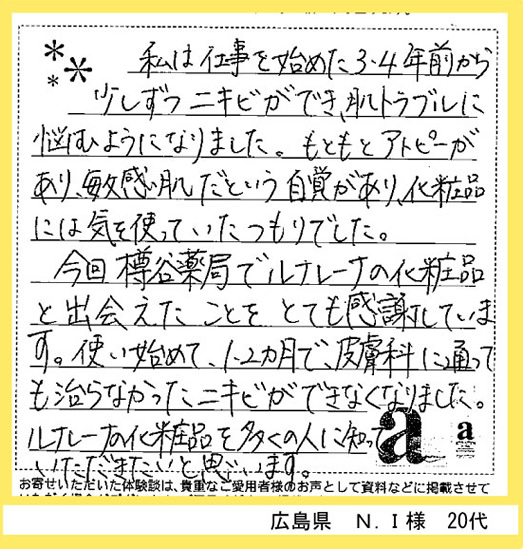 私は仕事を始めた3・4年前から
少しずつニキビができ、肌トラブルに
悩むようになりました。もともとアトピーが
あり、敏感肌だという自覚があり、化粧品
には気を使っていたつもりでした。
今回樽谷薬局でルナレーナの化粧品
と出会えたことをとても感謝していま
す。使い始めて、1・2ヵ月で、皮膚科に通って
も治らなかったニキビができなくなりました。
ルナレーナの化粧品を多くの人に知って
いただきたいと思います。
a a
お寄せいただいた体験談は、貴重なご愛用者様のお声として資料などに掲載させて
広島県 N.I様 20代